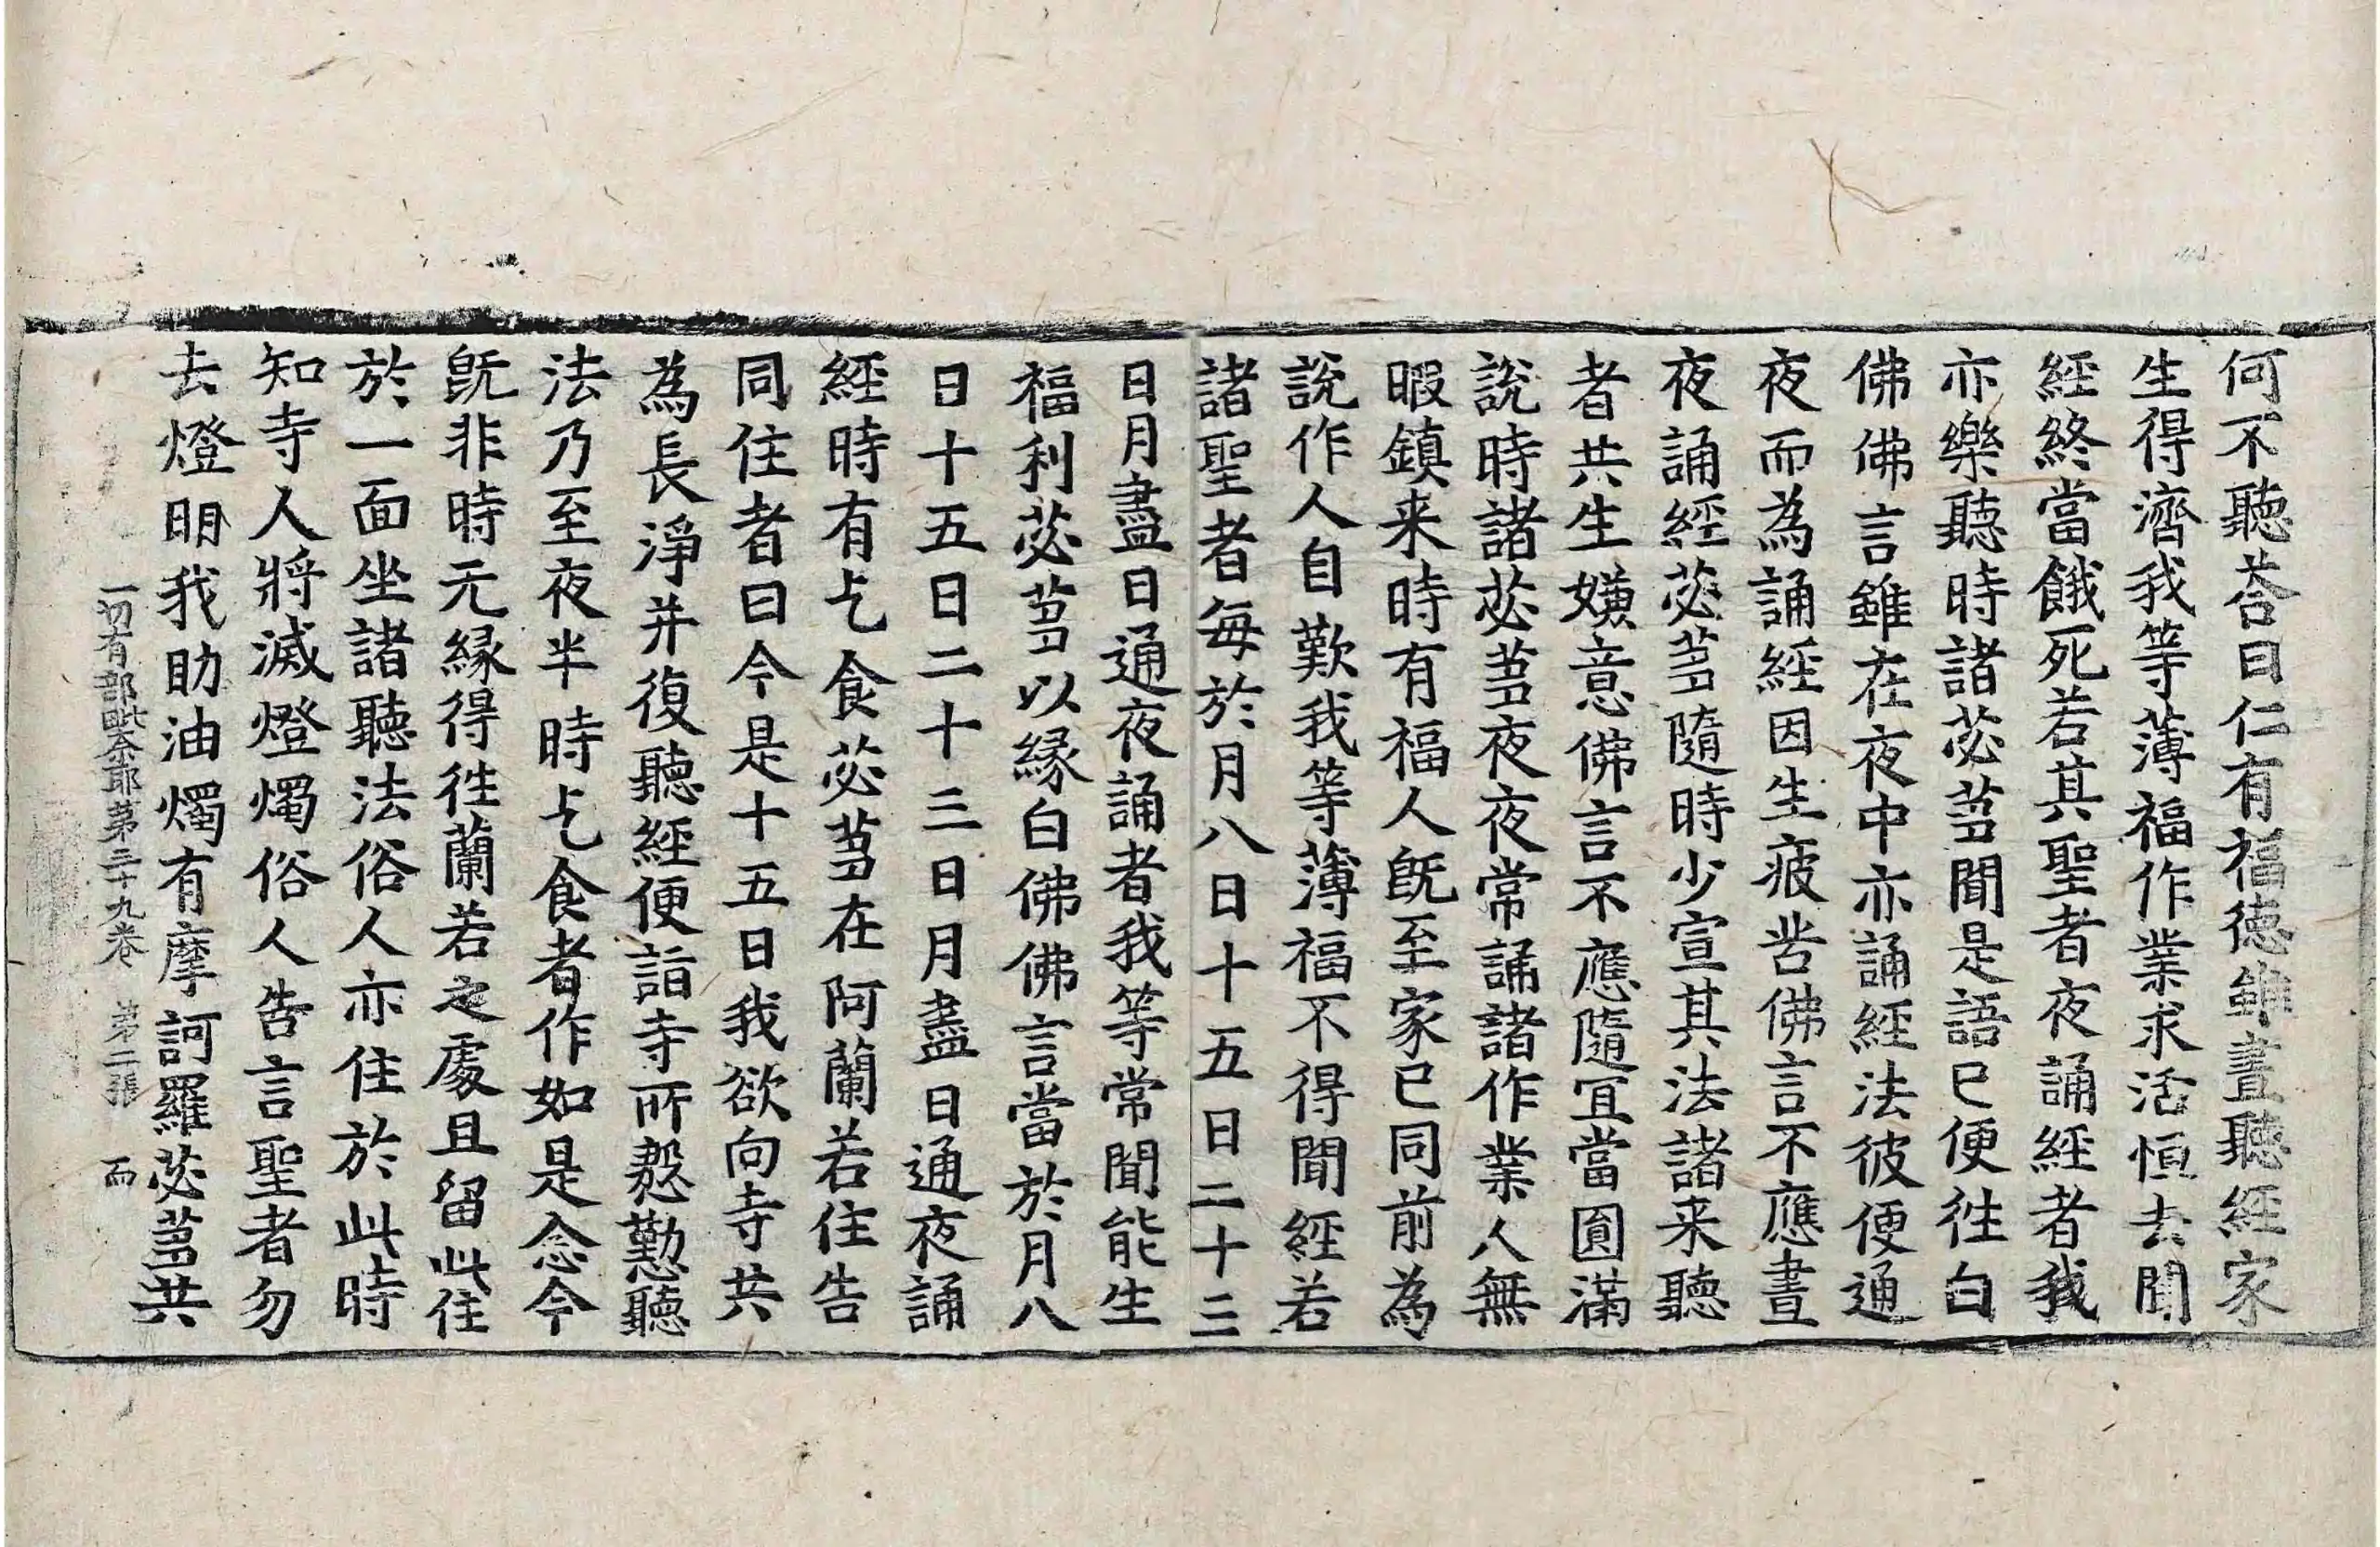 何不聽荅曰仁有福德雖晝聽經家
生得濟我等薄福作業求活恒去聞
經終當餓死若其聖者夜誦經者我
亦樂聽時諸苾芻聞是語已便往白
佛佛言雖在夜中亦誦經法彼便通
夜而為誦經因生疲苦佛言不應晝
夜誦經苾芻隨時少宣其法諸来聽
者共生嫌意佛言不應隨冝當圓滿
說時諸苾芻夜夜常誦諸作業人無
暇鎮来時有福人旣至家已同前為
說作人自歎我等薄福不得聞經若
諸聖者每於月八日十五日二十三
日月盡日通夜誦者我等常聞能生
福利苾芻以縁白佛佛言當於月八
日十五日二十三日月盡日通夜誦
經時有乞食苾芻在阿蘭若住告
同住者曰今是十五日我欲向寺共
為長淨并復聽經便詣寺所慇懃聽
法乃至夜半時乞食者作如是念今
旣非時无縁得往蘭若之處且留此住
於一面坐諸聽法俗人亦住於此時
知寺人將滅燈燭俗人告言聖者勿
去燈明我助油燭有摩訶羅苾芻共
一切有部毗奈耶第三十九卷 第二張 而